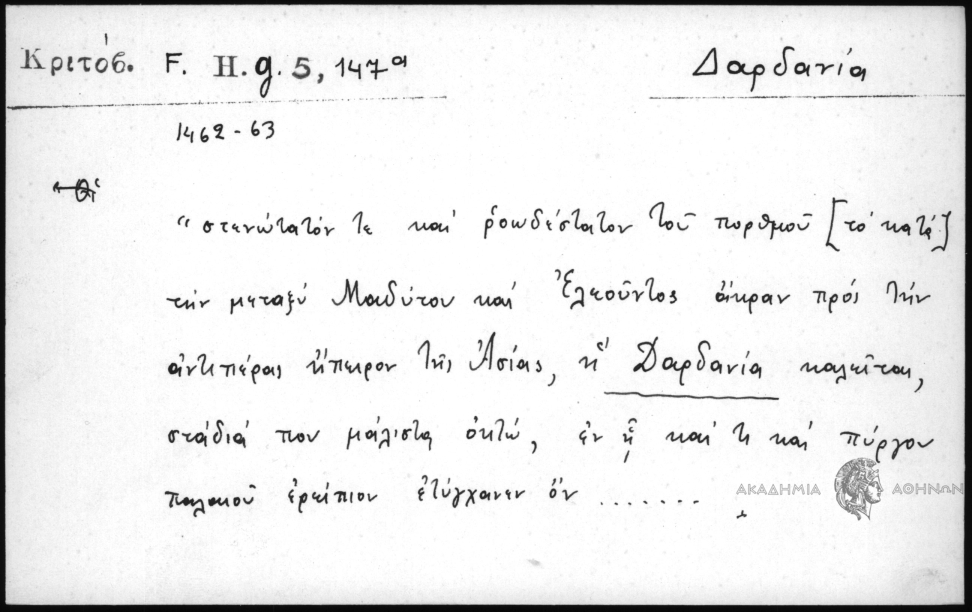 Κριτόβ. F. H. g. 5, 147ᵃ
Δαρδανία
1462 - 63
"στενώτατόν τε καί ῥοωδέστατον τοῦ πορθμοῦ [τό κατά]
τήν μεταξύ Μαιδύτου καί Ἐλεοῦντος ἄκραν πρός τήν
ἀντιπέρας ἤπειρον τῆς Ἀσίας, ἥ Δαρδανία καλεῖται,
στάδιά που μάλιστα ὀκτώ, ἐν ᾗ καί τι καί πύργου
παλαιοῦ ἐρείπιον ἐτύγχανεν ὄν .......
ΑΚΑΔΗΜΙΑ ΑΘΗΝΩΝ